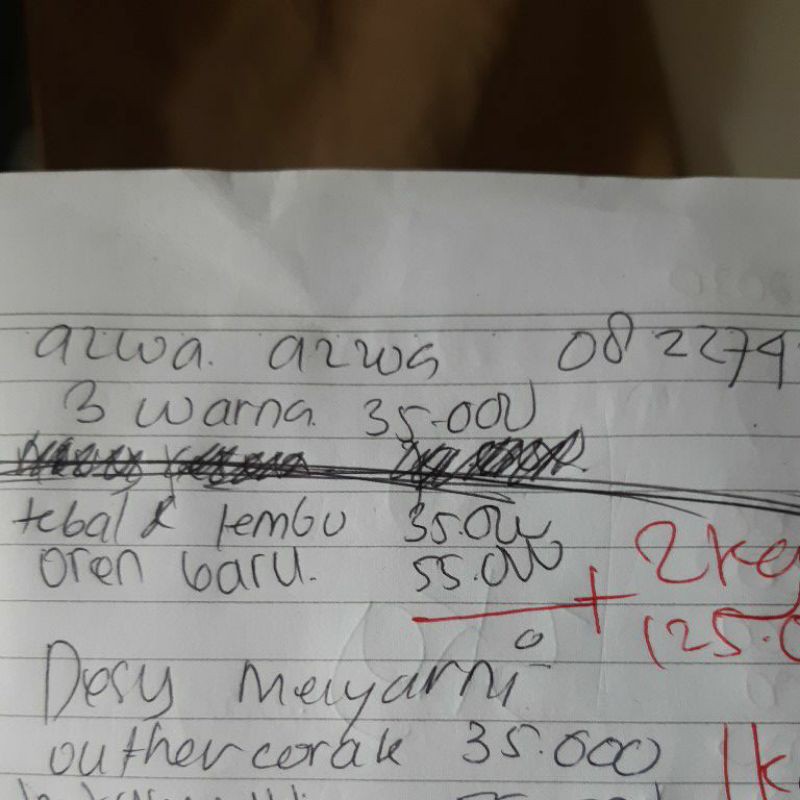 azwa. azwa 082274
3 warna. 35.000
tebal & lembu 35.000
oren baru. 55.000
+ 2 kg
125.0
Desy Meiyarni
outher corak 35.000 1k